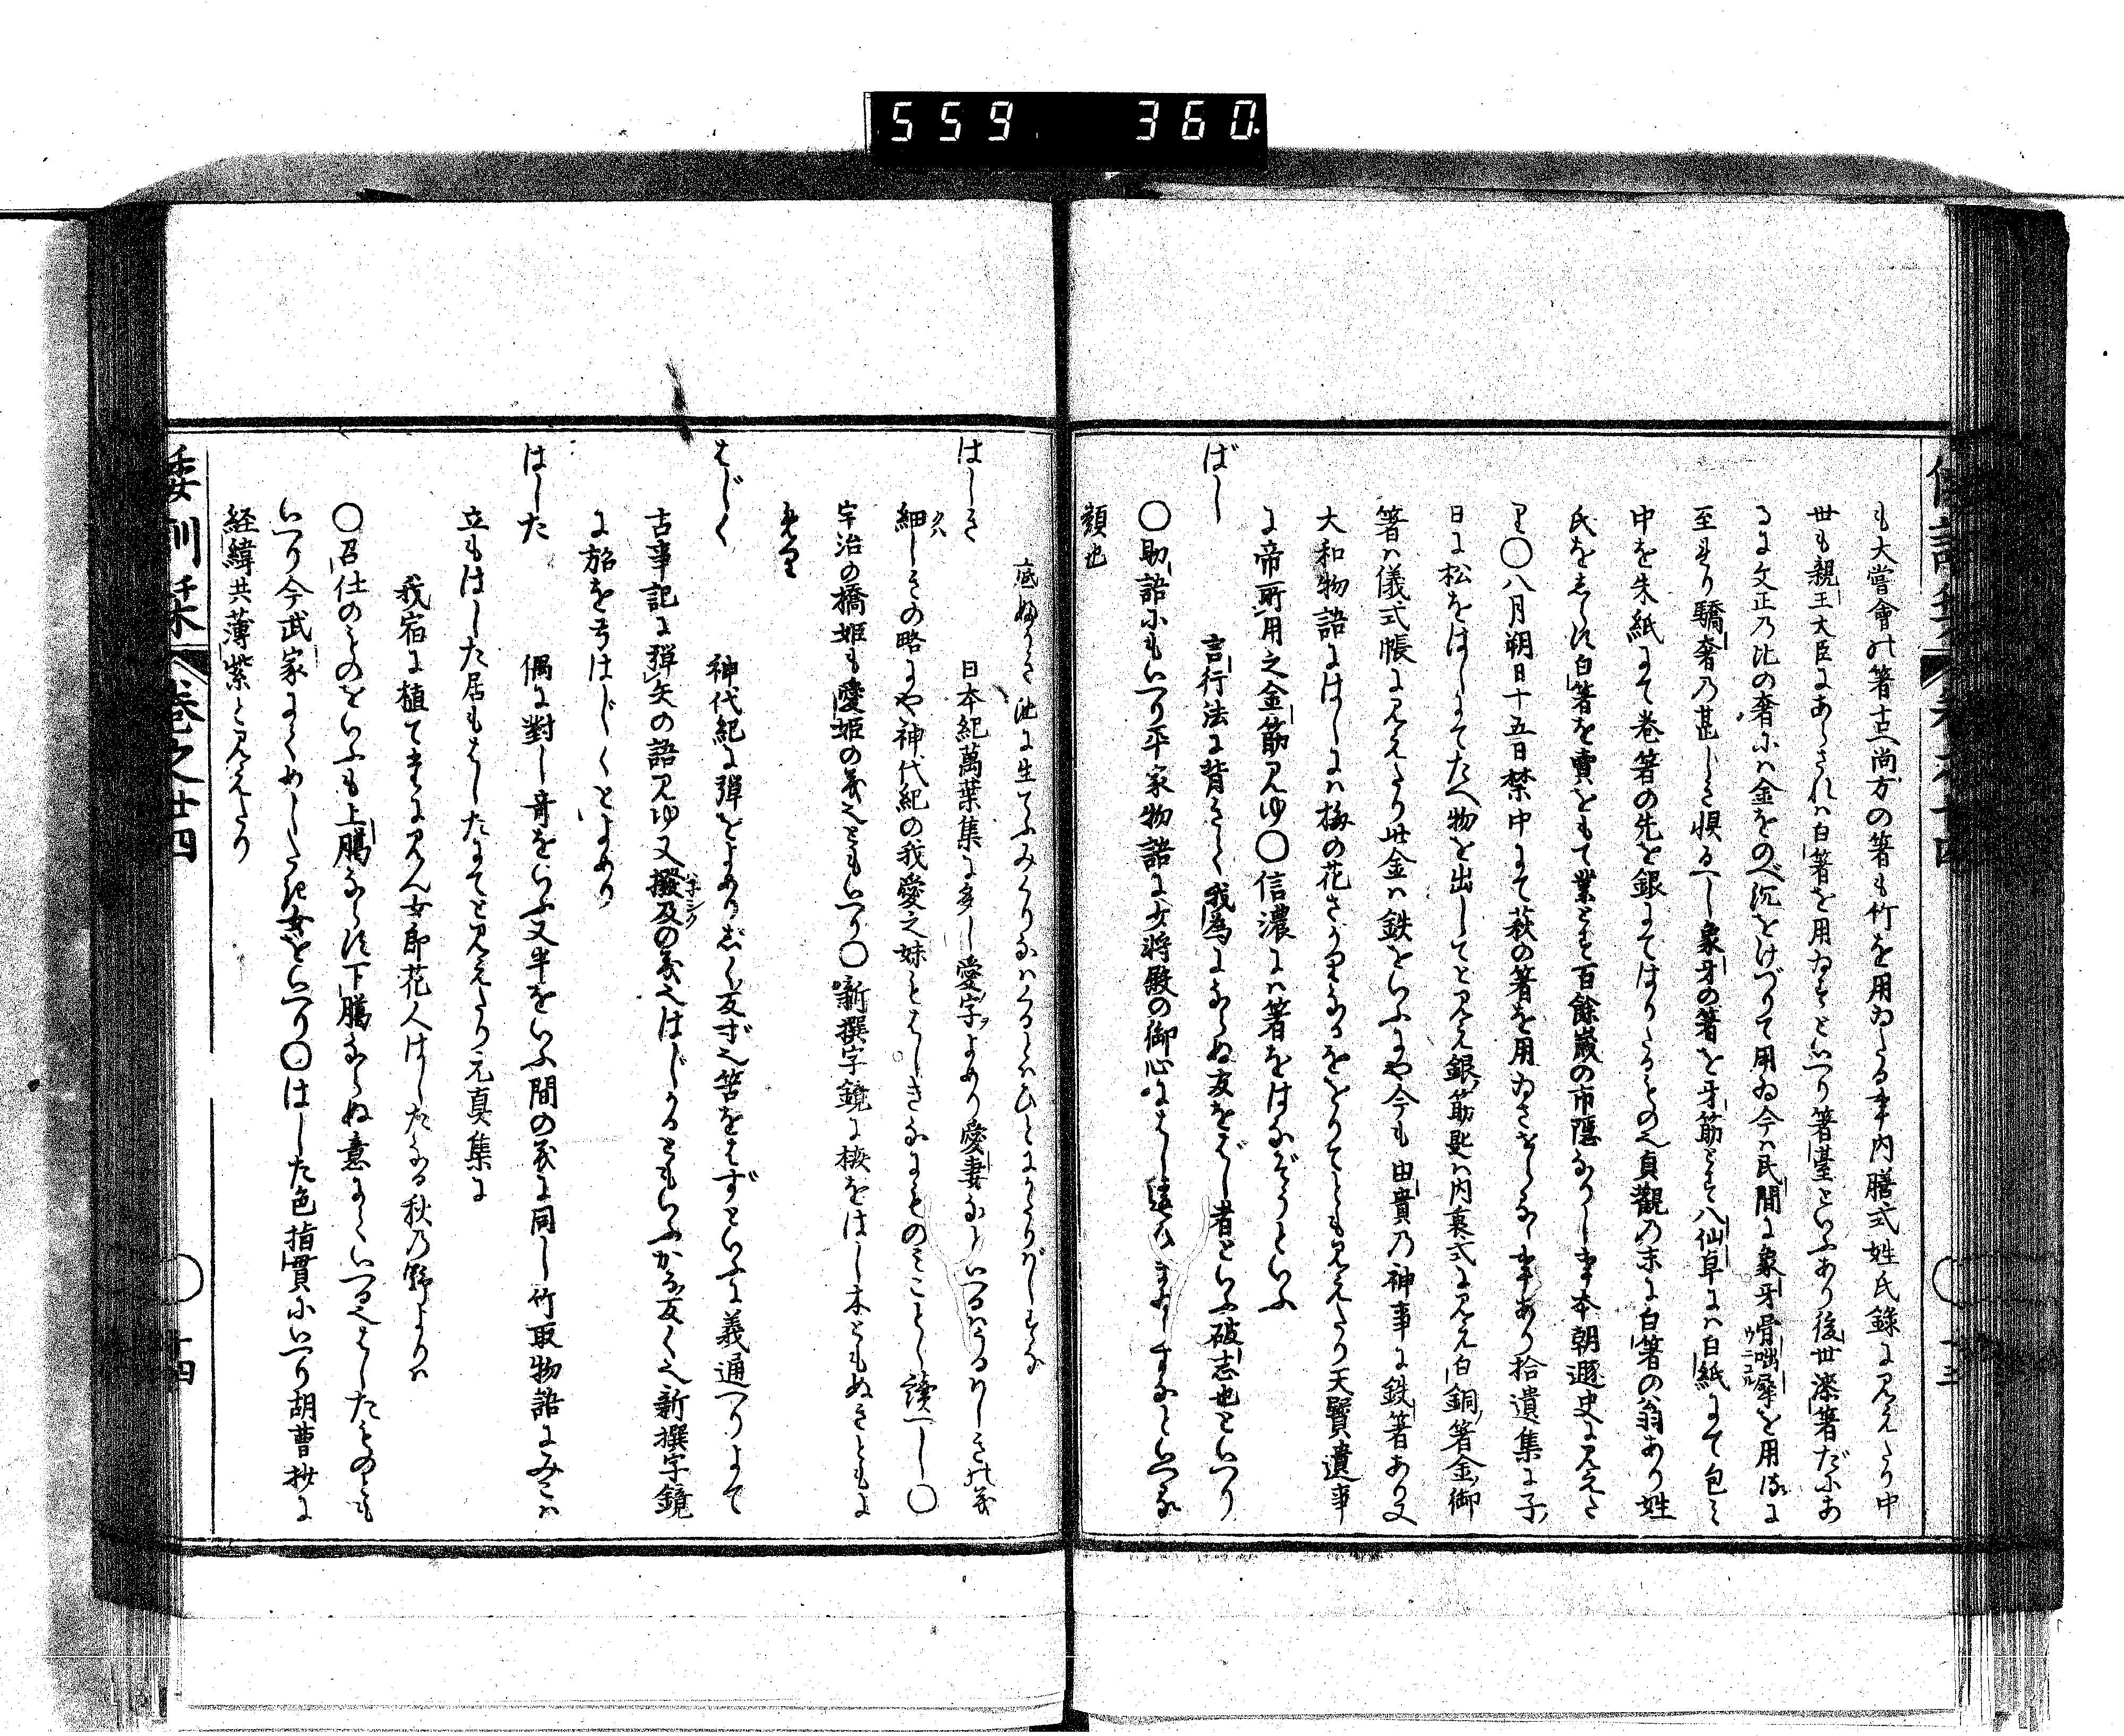 559 360
も大嘗會の箸古へ尚方の箸も竹を用ゐたる事内膳式姓氏錄に見えたり中
世も親王大臣にあらされハ白箸を用ゐすといへり箸臺といふあり後世漆箸だにあ
るに文正乃比の奢にハ金をのべ沉をけづりて用ゐ今ハ民間に象牙骨咄犀を用るに
ウニコル
至れり驕奢乃甚しき惧るへし象牙の箸を牙筯とす八仙卓にハ白紙にて包ミ
中を朱紙にて巻箸の先を銀にてはりたるもの也貞觀乃末に白箸の翁あり姓
氏をしらす白箸を賣をもて業とす百餘歳の市隠なりし事本朝遯史に見えた
り〇八月朔日十五日禁中にて萩の箸を用ゐさせらるゝ事あり拾遺集に子
日に松をはしにてたへ物を出してと見え銀筯匙ハ内裏式に見え白銅箸金御
箸ハ儀式帳に見えたり世金ハ鉄をいふにや今も由貴乃神事に鉄箸あり又
大和物語にはしにハ梅の花さかりなるををりてとも見えたり天寳遺事
に帝所用之金筯見ゆ〇信濃にハ箸をはなぞうといふ
ばし 言行法に背きて我為にならぬ友をばし者といふ破志也といへり
〇助語にもいへり平家物語に少将殿の御心にばし違ひますなといへる
類也
底ぬるき池に生てふみくりなハくるとハひとにかたりばしすな
はしき 日本紀萬葉集に多し愛字をよめり愛妻なといへるハうるはしきの義
細しきの略にや神代紀の我愛之妹とはしきなにものみことゝ讀へし〇
クハ
宇治の橋姫も愛姫の義也ともいへり〇新撰字鏡に椴をはし木ともぬきともよ
めり
はじく 神代紀に彈をよめりはじく反ず也筈をはずといふに義通へりよて
古事記に彈矢の語見ゆ又撥及の義也はじかるともいふかる反く也新撰字鏡
ハネシク
に䂫を弓はじくとよめり
はした 偶に對し奇をいふ又半をいふ間の義に同し竹取物語にみこハ
立もはした居もはしたにてと見えたり元真集に
我宿に植てたに見ん女郎花人はしたなる秋乃野よりハ
〇召仕のものをいふも上臈ならす下臈ならぬ意にていへる也はしたものとも
いへり今武家にてめしつかふ女をもいへり〇はした色指貫にいへり胡曹抄に
経緯共薄紫と見えたり
倭訓栞 巻之廿四 十四